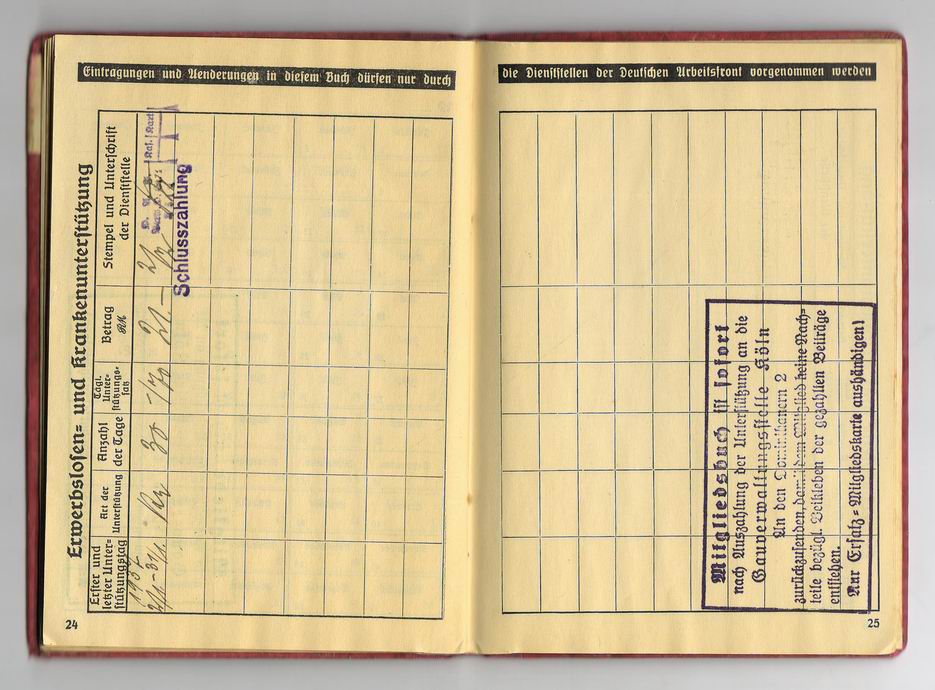 Eintragungen und Aenderungen in diesem Buch dürfen nur durch
Erwerbslosen= und Krankenunterstützung
Erster und
letzter Unter=
stützungstag
Art der
Unterstützung
Anzahl
der Tage
Tägl.
Unter=
stützungs=
satz
Betrag
RM
Stempel und Unterschrift
der Dienststelle
1937
30
21.—
Schlusszahlung
24
die Dienststellen der Deutschen Arbeitsfront vorgenommen werden
Mitgliedsbuch ist sofort
nach Auszahlung der Unterstützung an die
Gauverwaltungsstelle Köln
An den Dominikanern 2
zurückzusenden, damit dem Mitglied keine Nach=
teile bezügl. Beikleben der gezahlten Beiträge
entstehen.
Nur Ersatz=Mitgliedskarte aushändigen!
25